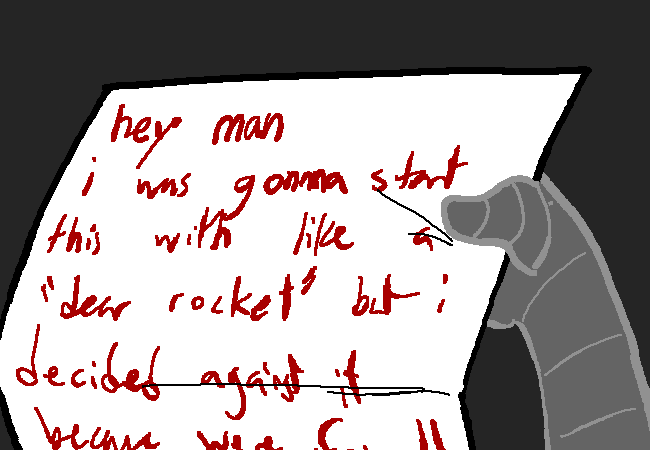 hey man
i was gonna start
this with like a
"dear rocket" but i
decided against it